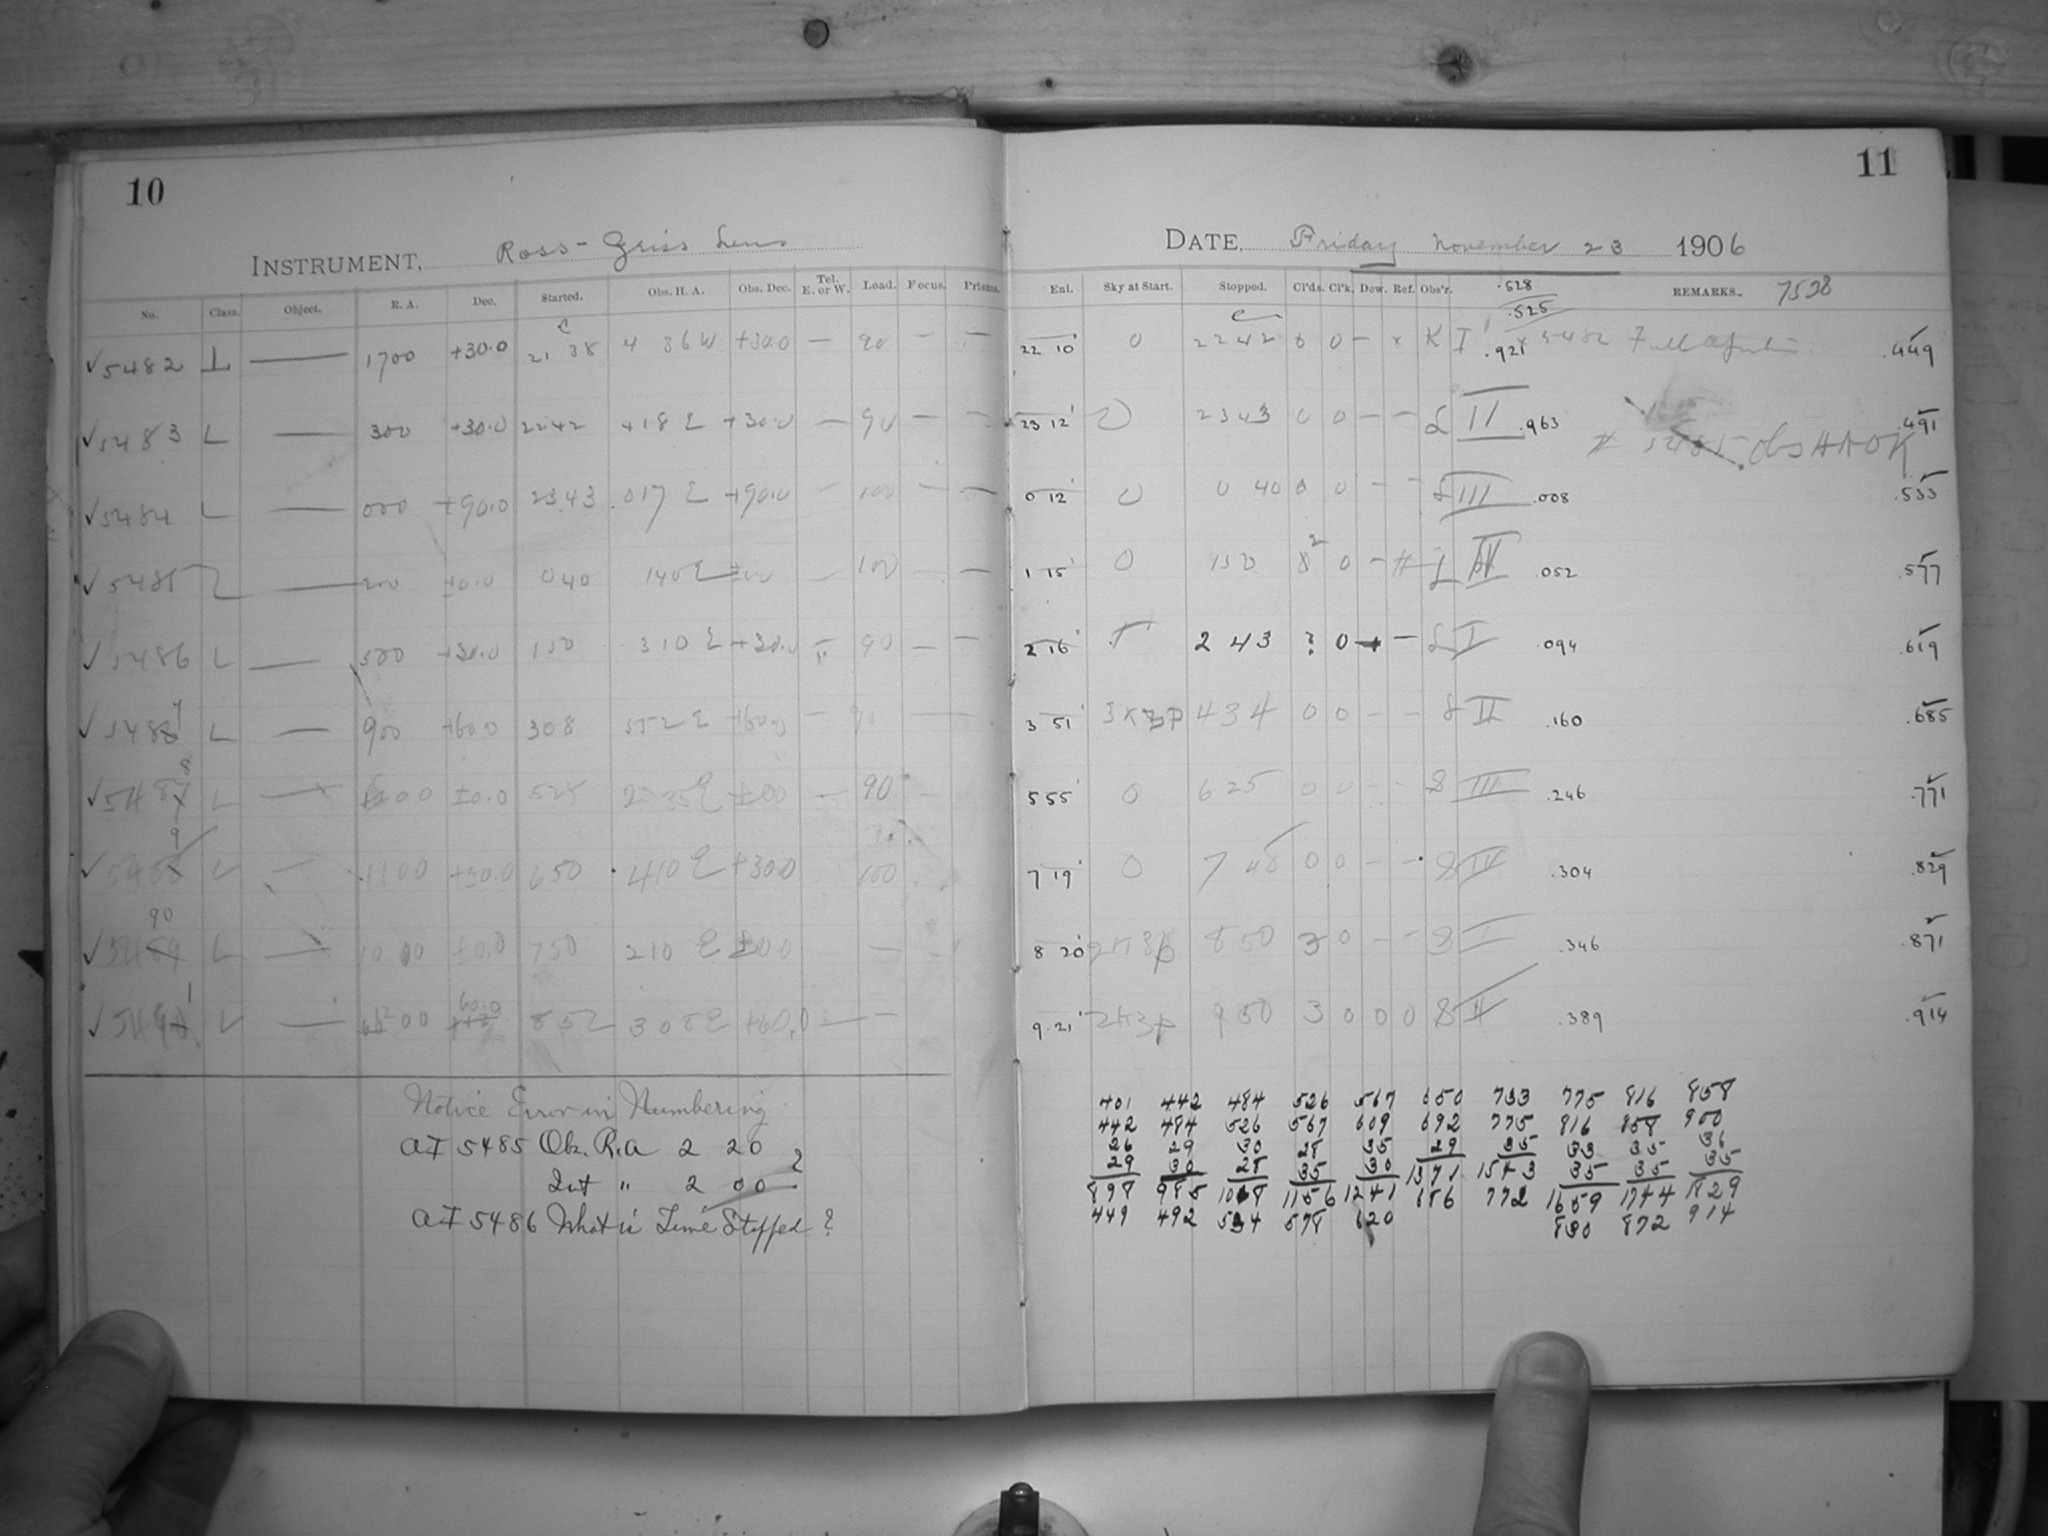 10
INSTRUMENT, Ross-Zeiss Lens
No. Class. Object. R. A. Dec. Started. Obs. H. A. Obs. Dec. Tel. E. or W. Load. Focus. Prisms.
✓5482 L — 1700 +30.0 21 38 4 36 W +30.0 — 90 — —
✓5483 L — 300 +30.0 2242 418 E +30.0 — 90 — —
✓5484 L — 000 +90.0 2343 017 E +90.0 — 100 — —
✓5485 L — 200 ±0.0 040 140 E — 100 — —
✓5486 L — 500 +30.0 150 310 E +30.0 90 — —
✓5487 L — 900 +60.0 308 552 E +60.0 — 90 —
✓5488 L — 00 ±0.0 525 2 35 E ±00 — 90
✓5489 L — 1100 +30.0 650 410 E +30.0 100
✓5490 L — 10 00 ±0.0 750 210 E ±00.0 —
✓5491 L — 00 60.0 852 308 E +60.0 — —
Notice Error in Numbering
AI 5485 Obs. R.A 2 20
Int " 2 00 ?
AI 5486 What is Time Stopped ?
11
DATE, Friday November 23 1906
Ent. Sky at Start. Stopped. Cl'ds. Cl'k. Dew. Ref. Obs'r. .528 REMARKS. 7538
.525
22 10 0 2242 0 0 — x K I .921 x 5482 Full Aperture .449
23 12 0 2343 0 0 — — L II .963 .491
# 5485 Obs HA OK
0 12 0 0 40 0 0 — — L III .008 .533
1 15 0 150 2 0 — # L IV .052 .577
2 16 2 43 ? 0 — — L I .094 .619
3 51 434 0 0 — — 8 II .160 .685
5 55 0 625 0 0 — — 8 III .246 .771
7 19 0 7 0 0 — — 8 IV .304 .829
8 20 850 3 0 — — 8 I .346 .871
9 21 950 3 0 0 0 8 II .389 .914
401 442 484 526 567 650 733 775 816 858
442 484 526 567 609 692 775 816 858 900
26 29 30 28 35 29 35 33 35 36
29 30 28 35 30 1371 1543 35 35 35
898 985 1068 1156 1241 686 772 1659 1744 1829
449 492 534 578 620 830 872 914